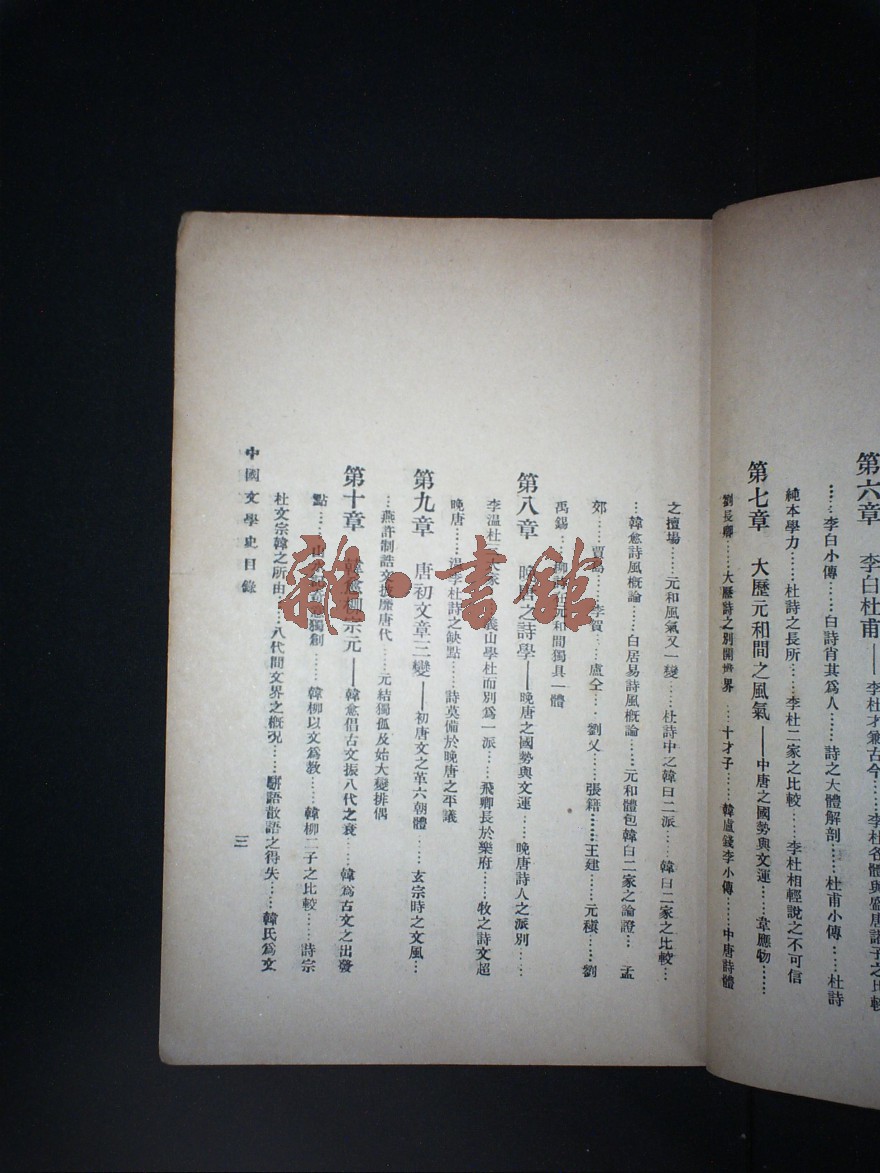 第六章　李白杜甫——李杜才兼古今……李杜各體與盛唐諸子之比較
……李白小傳……白詩肖其爲人……詩之大體解剖……杜甫小傳……杜詩
純本學力……杜詩之長所……李杜二家之比較……李杜相輕說之不可信
第七章　大歷元和間之風氣——中唐之國勢與文運……韋應物……
劉長卿……大歷詩之別開世界……十才子……韓盧錢李小傳……中唐詩體
之擅場……元和風氣又一變……杜詩中之韓白二派……韓白二家之比較…
…韓愈詩風概論……白居易詩風概論……元和體包韓白二家之論證…孟
郊……賈島……李賀……盧仝……劉乂……張籍……王建……元稹……劉
禹錫……柳詩在元和間獨具一體
第八章　晚唐之詩學——晚唐之國勢與文運……晚唐詩人之派別……
李溫杜三大家……義山學杜而別爲一派……飛卿長於樂府……牧之詩文超
晚唐……溫李杜詩之缺點……詩莫備於晚唐之平議
第九章　唐初文章三變——初唐文之革六朝體……玄宗時之文風…
…燕許制誥文振靡唐代……元結獨孤及始大變排偶
第十章　韓愈柳宗元——韓愈倡古文振八代之衰……韓爲古文之出發
點……山水記 獨創……韓柳以文爲教……韓柳二子之比較……詩宗
杜文宗韓之所由……八代間文界之概況……駢語散語之得失……韓氏爲文
中國文學史目錄
三
雜·書館